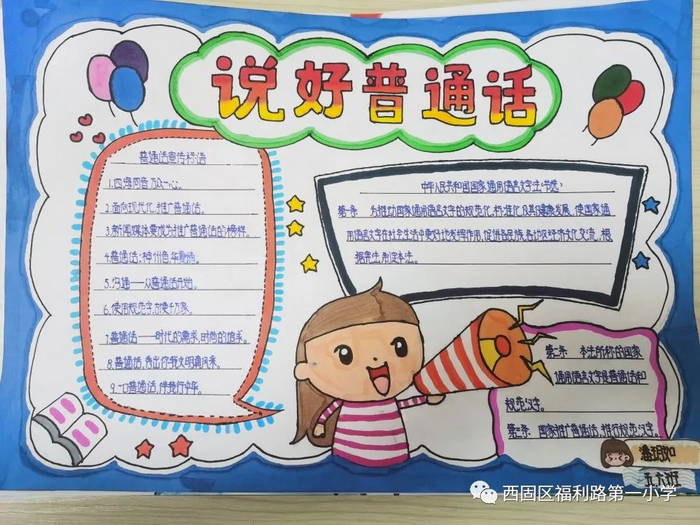 说好普通话
普通话宣传标语
1.四海同音,万众一心。
2.面向现代化,推广普通话。
3.新闻媒体要成为推广普通话的榜样。
4.普通话:神州音,华夏情。
5.沟通——从普通话开始。
6.使用规范字,方便千万家。
7.普通话——时代的需求,时尚的追求。
8.普通话,秀出你我文明风采。
9.一口普通话,伴我行中华。
中华人民共和国国家通用语言文字法(节选)
第一条 为推动国家通用语言文字的规范化,标准化及其健康发展,使国家通
用语言文字在社会生活中更好地发挥作用,促进各民族,各地区经济文化交流,根
据宪法,制定本法。
第二条 本法所称的国家
通用语言文字是普通话和
规范汉字。
第三条 国家推广普通话,推行规范汉字。
五六班
西固区福利路第一小学